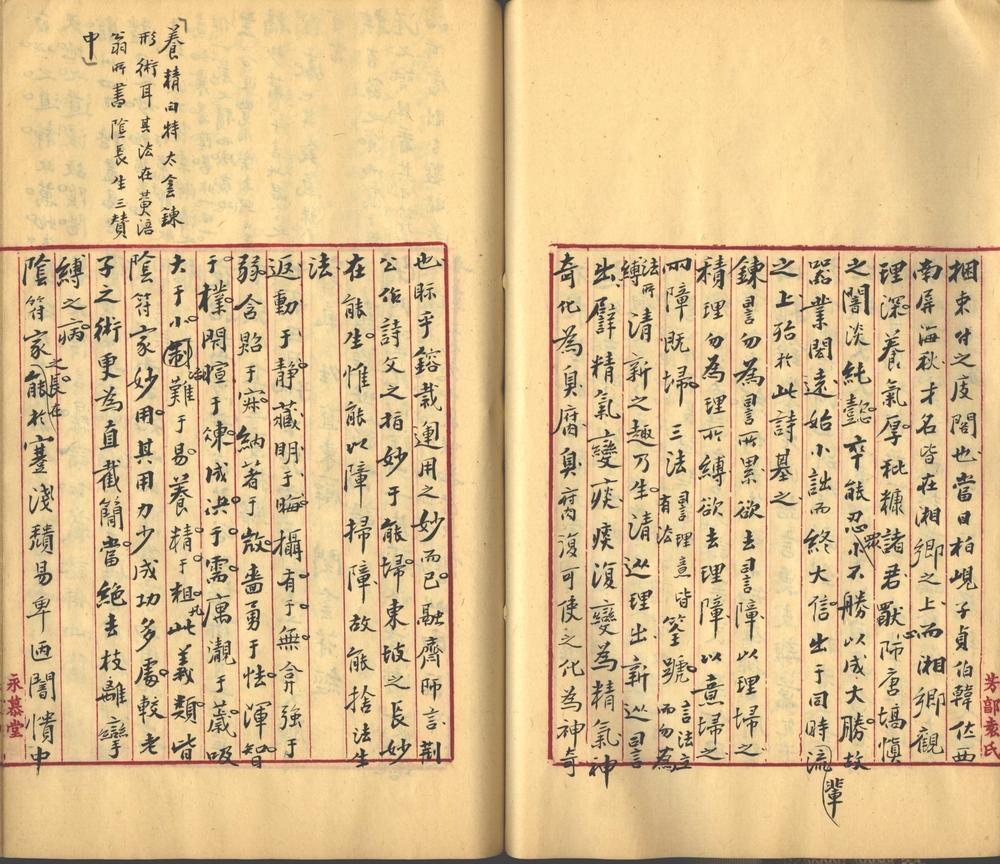 捆束付之庋閣也當日柏峴子貞伯韓佐西
南屏海秋才名皆在湘鄉之上而湘鄉觀
理深養氣厚秕糠諸君獸師唐塙慎
之闇淡純懿卒能忍小不勝以成大勝故
器業閎遠始小詘而終大信出于同時流輩
之上殆於此詩基之
鍊詈勿為詈所累欲去詈障以理埽之
積理勿為理所縛欲去理障以意埽之
兩障既埽三法詈理意皆筌蹏言法立有法而勿為
法所縛清新之趣乃生清巡理出新巡詈
出孱精氣變痰痰復變為精氣神
奇化為臭腐臭腐復可使之化為神奇
芳部袁氏
也眎乎鎔裁運用之妙而已融齋師言荊
公作詩文之指妙于能埽東坡之長妙
在能生惟能以障掃障故能捨法生
法
返動于靜藏明于晦攝有于無弇強于
弱含貽于寐納著于斂嗇勇于怯渾智
于樸閑暄于煉成決于需寓瀾于葳吸
大于小制難于易養精于粗凡此義類皆
陰符家妙用其用力少成功多處較老
子之術更為直截簡當絕去枝離攣
縛之病
陰符家之長在能於蹇淺纇易卑迺闇憒中
「養精曰特太金鍊
形術耳其法在黃涪
翁所書陰長生三贊
中」
永慕堂